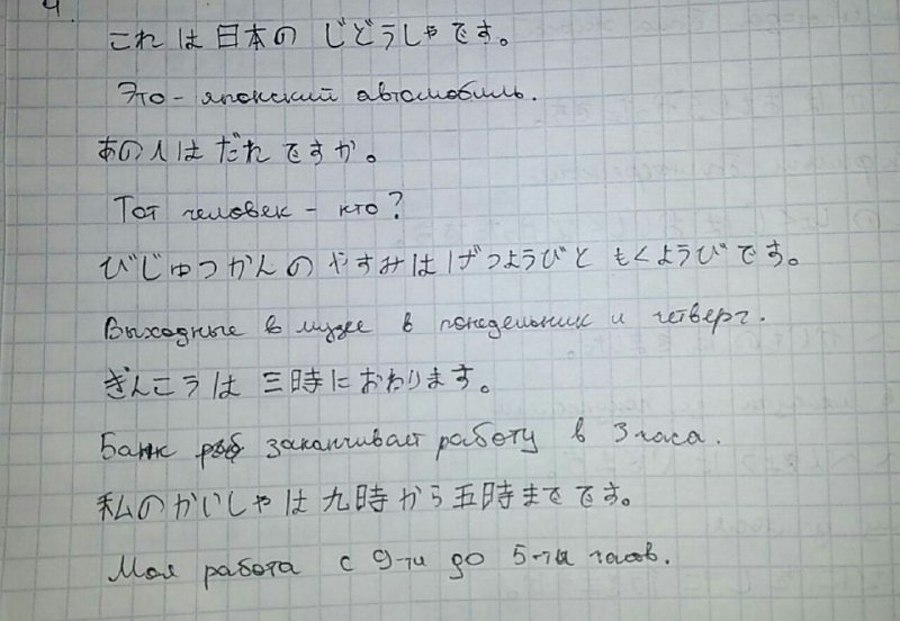 4.
これは日本の じどうしゃです。
Это - японский автомобиль.
あの人は だれですか。
Тот человек - кто?
びじゅつかんの やすみは げつようびと もくようびです。
Выходные в музее в понедельник и четверг.
ぎんこうは 三時に おわります。
Банк заканчивает работу в 3 часа.
私の かいしゃは 九時から 五時までです。
Моя работа с 9-ти до 5-ти часов.